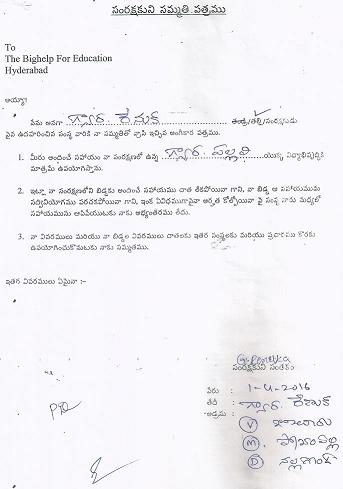 సంరక్షకుని సమ్మతి పత్రము
To
The Bighelp For Education
Hyderabad
అయ్యా!
నేను అనగా గ్యార. రేణుక తండ్రి/తల్లి/సంరక్షకుడు
పైన ఉదహరించిన సంస్థ వారికి నా సమ్మతితో వ్రాసి ఇచ్చిన అంగీకార పత్రము.
1. మీరు అందించే సహాయం నా సంరక్షణలో ఉన్న గ్యార. పల్లవి యొక్క విద్యాభివృద్ధికి
మాత్రమే ఉపయోగిస్తాను.
2. ఇట్లా నా సంరక్షణలోని బిడ్డకు అందించే సహాయము దాత లేకపోయినా గాని, నా బిడ్డ ఆ సహాయమును
సద్వినియోగము పరచకపోయినా గాని, ఇంక ఏవిధముగానైనా అర్హత కోల్పోయినా పై సంస్థ వారు మధ్యలో
సహాయమును ఆపివేయుటకు నాకు అభ్యంతరము లేదు.
3. నా వివరములు మరియు నా బిడ్డ వివరములు దాతలకు ఇతర సంస్థలకు మరియు ప్రచారము కొరకు
ఉపయోగించుకొనుటకు నాకు సమ్మతము.
ఇతర వివరములు ఏమైనా :-
G. Renuka
సంరక్షకుని సంతకం
పేరు : 1-4-2016
తేదీ : గ్యార. రేణుక
అడ్రసు :
V
M
D నల్లగొండ